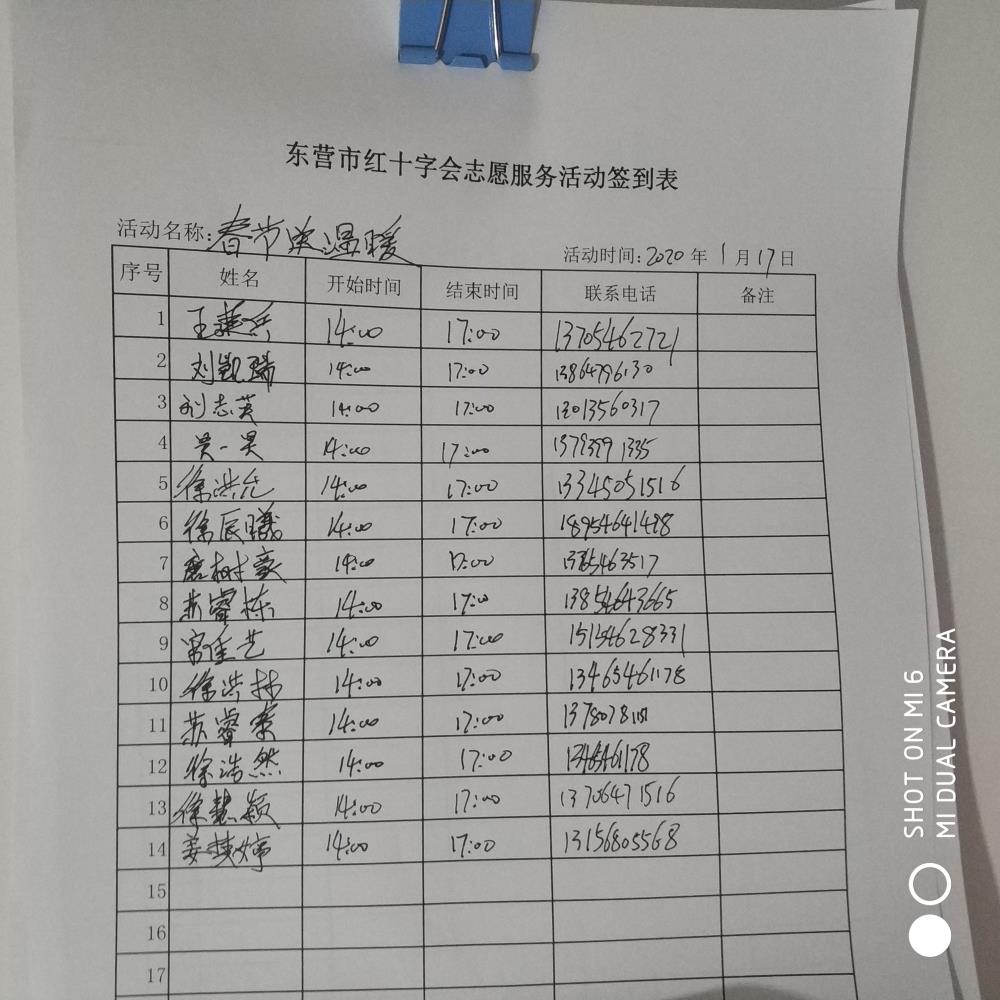 东营市红十字会志愿服务活动签到表
活动名称:春节送温暖 活动时间:2020年1月17日
序号 姓名 开始时间 结束时间 联系电话 备注
1 王 14:00 17:00 13705462721
2 刘凯瑞 14:00 17:00 13864796130
3 刘志英 14:00 17:00 13013560317
4 吴一昊 14:00 17:00
5 徐洪允 14:00 17:00 13345051516
6 徐辰曦 14:00 17:00 18954641498
7 树豪 14:00 17:00
8 苏睿栋 14:00 17:00 13854643665
9 佳艺 14:00 17:00 15154628331
10 徐洪林 14:00 17:00 13465461178
11 苏睿 14:00 17:00
12 徐浩然 14:00 17:00
13 徐慧颖 14:00 17:00 13706471516
14 姜婷 14:00 17:00 13156805568
15
16
17
SHOT ON MI 6
MI DUAL CAMERA